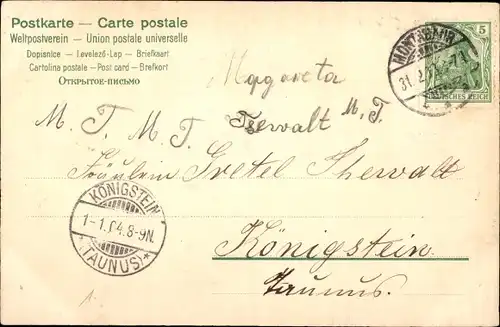 Postkarte — Carte postale
Weltpostverein — Union postale universelle
Dopisnice — Levelező-Lap — Briefkaart
Cartolina postale — Post card — Brefkort
Открытое-письмо
5
DEUTSCHES REICH
MONTABAUR
31.
Маргarета
M. T. M. T. Тsewalt M. T.
Fräulein Gretel Thewalt
KÖNIGSTEIN
1-1.04.8-9N.
*(TAUNUS)*
Königstein
Taunus.